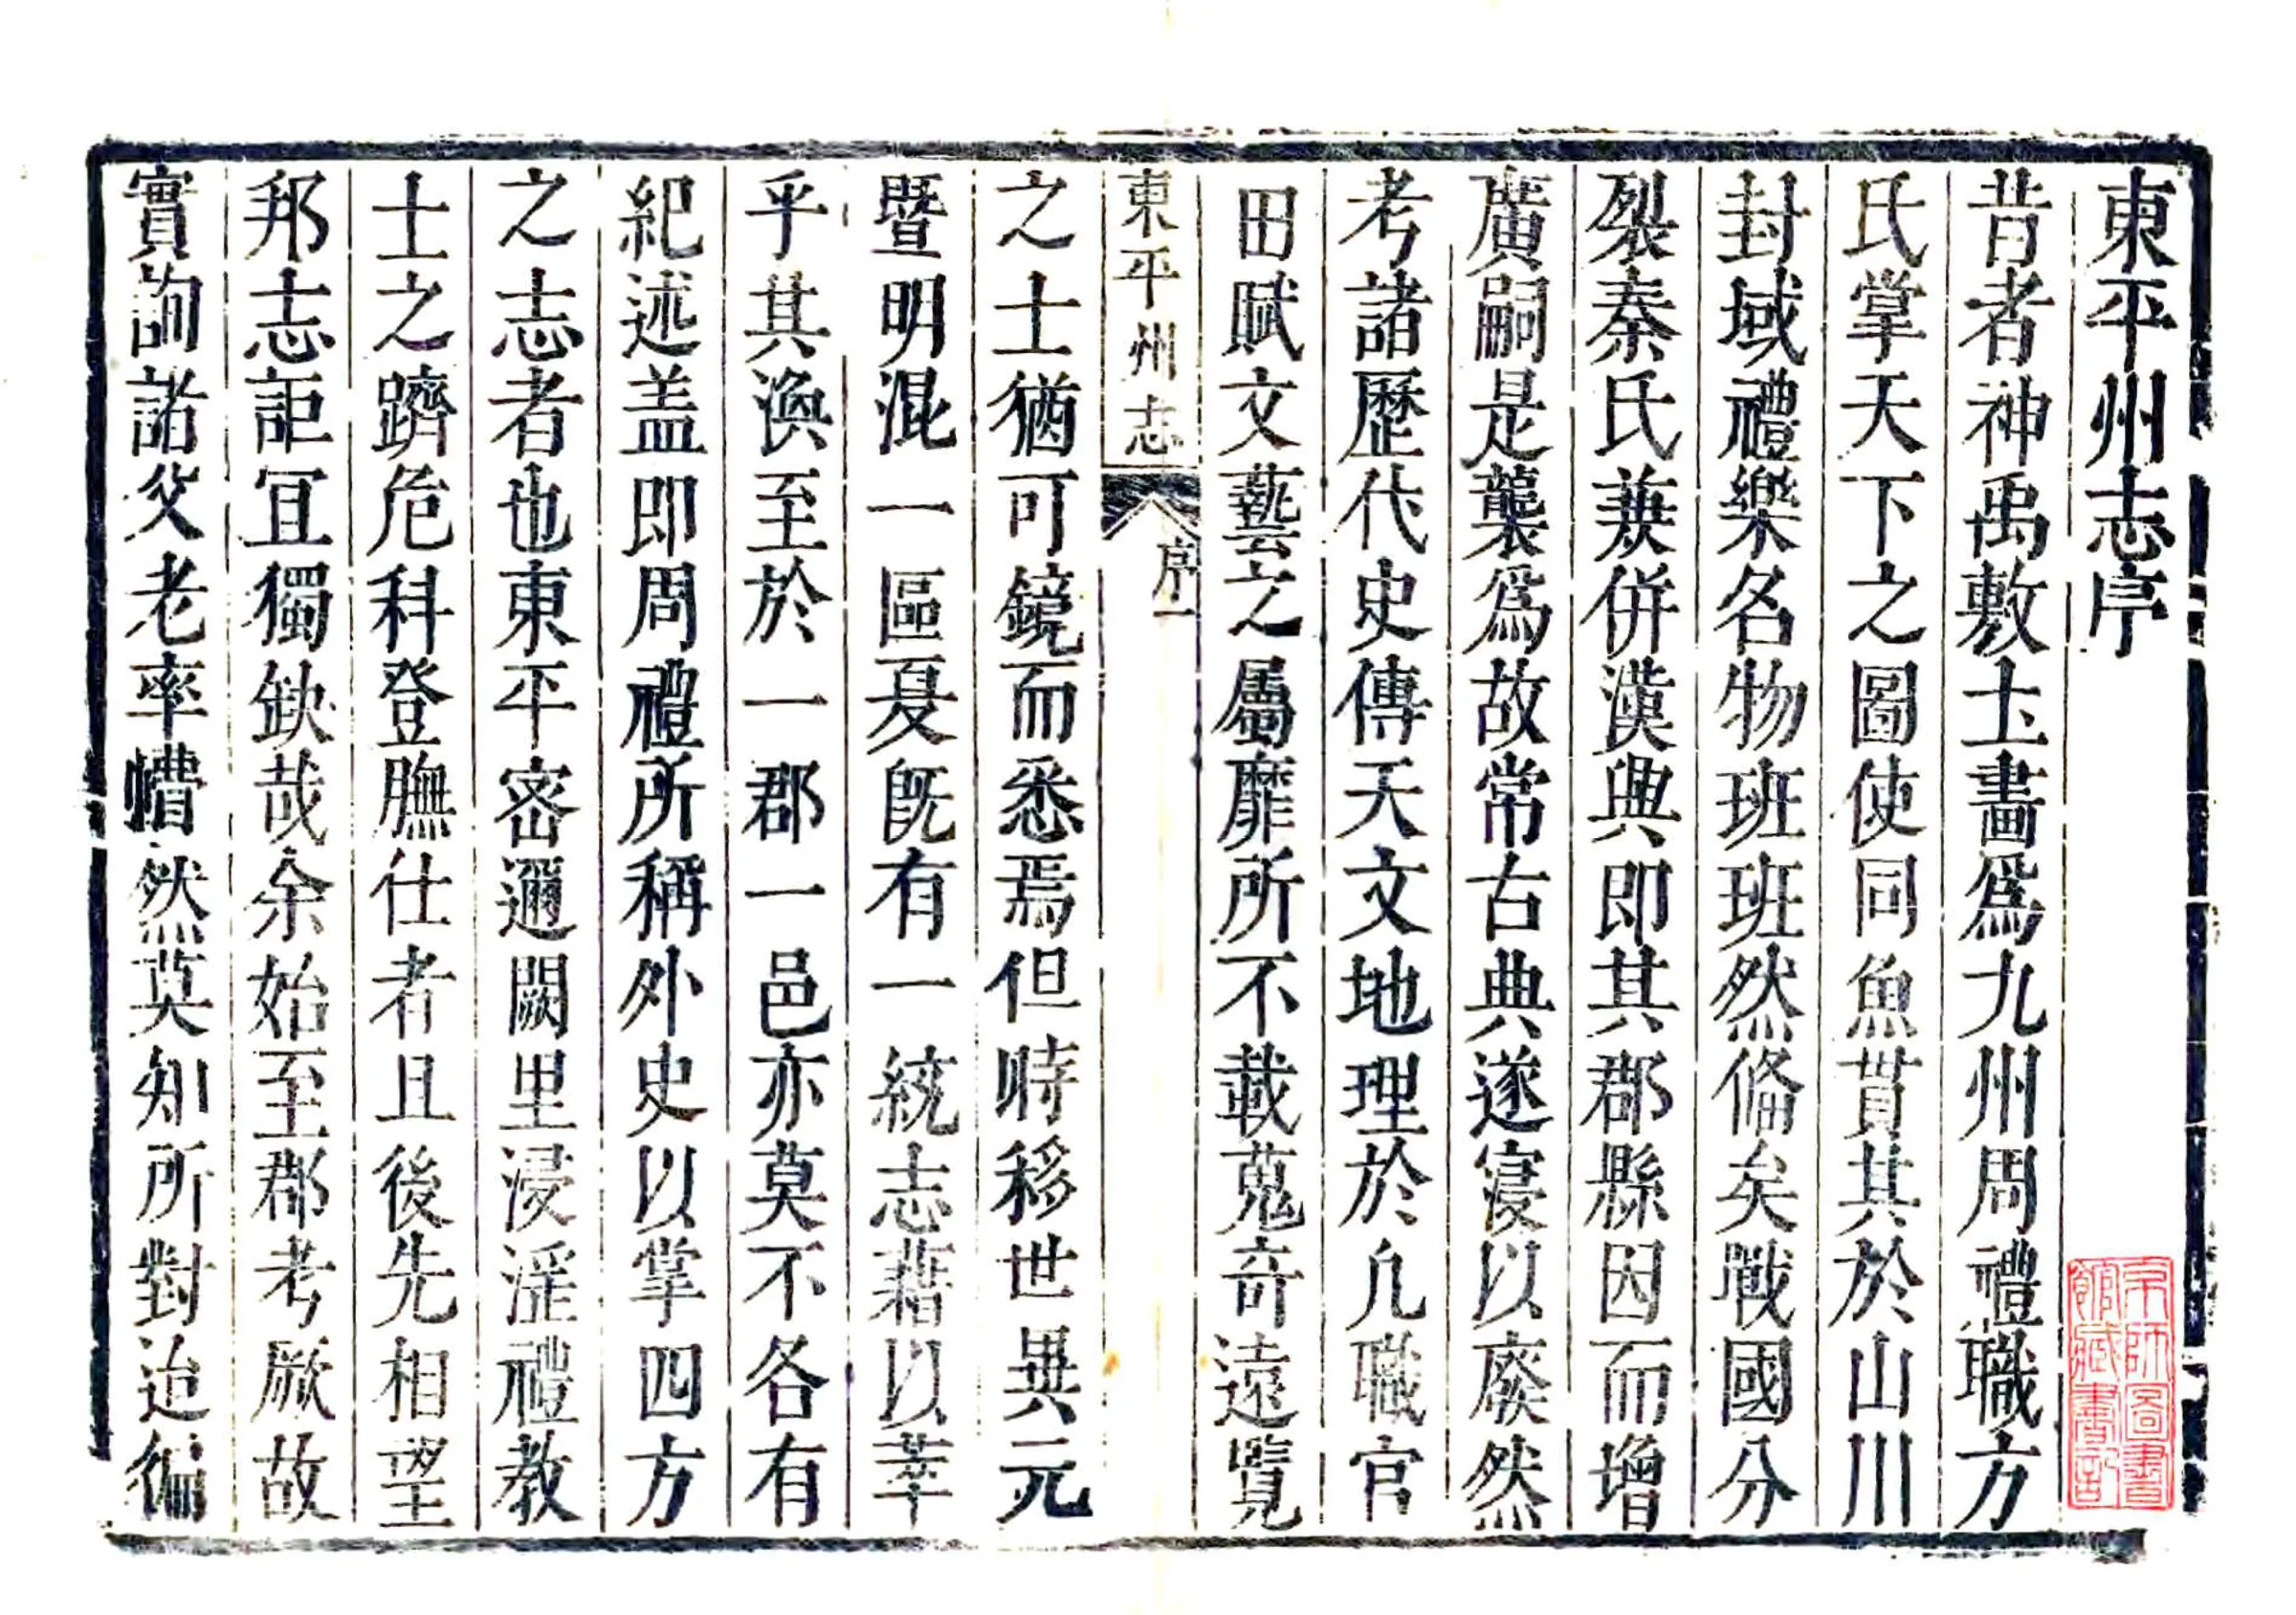 東平州志序
昔者神禹敷土畫爲九州周禮職方
氏掌天下之圖使同魚貫其於山川
封域禮樂名物班班然俻矣戰國分
裂秦氏兼併漢興即其郡縣因而增
廣嗣是襲爲故常古典遂寖以廢然
考諸歷代史傳天文地理於凢職官
田賦文藝之屬靡所不載蒐奇遠覽
東平州志
序一
之士猶可鏡而悉焉但時移世異元
暨明混一區夏旣有一統志藉以萃
乎其渙至於一郡一邑亦莫不各有
紀述盖即周禮所稱外史以掌四方
之志者也東平密邇闕里浸淫禮教
士之躋危科登膴仕者且後先相望
邦志詎冝獨缺哉余始至郡考厥故
實詢諸父老率懵然莫知所對迨徧
京師圖書
館藏書記